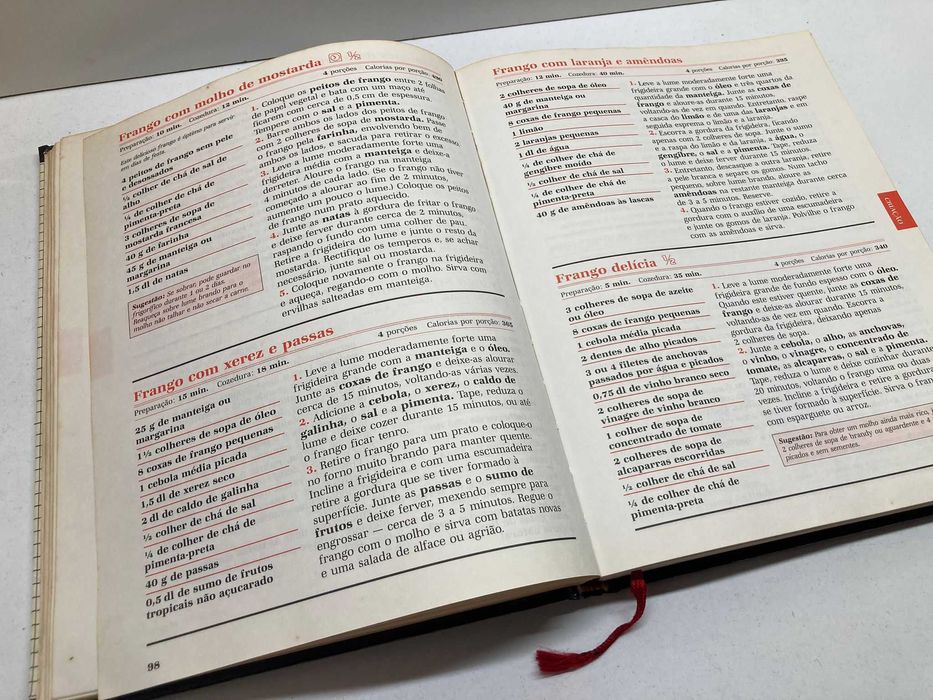 Frango com molho de mostarda ½
4 porções Calorias por porção: 490
Preparação: 10 min. Cozedura: 12 min.
Este delicioso frango é óptimo para servir
em dias de festa.
4 peitos de frango sem pele
e desossados
½ colher de chá de sal de
alho
¼ de colher de chá de
pimenta-preta
3 colheres de sopa de
mostarda francesa
40 g de farinha
45 g de manteiga ou
margarina
1,5 dl de natas
Sugestão: Se sobrar, pode guardar no
frigorífico durante 1 ou 2 dias.
Reaqueça sobre lume brando para o
molho não talhar e não secar a carne.
1. Coloque os peitos de frango entre 2 folhas
de papel vegetal e bata com um maço até
ficarem com cerca de 0,5 cm de espessura.
Tempere com o sal e a pimenta.
2. Barre ambos os lados dos peitos de frango
com 2 colheres de sopa de mostarda. Passe
o frango pela farinha, envolvendo bem de
ambos os lados, e sacuda para retirar o excesso.
3. Leve a lume moderadamente forte uma
frigideira média com a manteiga e deixe-a
derreter. Aloure o frango na manteiga
4 minutos de cada lado. (Se o frango não tiver
começado a alourar ao fim de 2 minutos,
aumente um pouco o lume.) Coloque os peitos
de frango num prato aquecido.
4. Junte as natas à gordura de fritar o frango
e deixe ferver durante cerca de 2 minutos,
raspando o fundo com uma colher de pau.
Retire a frigideira do lume e junte o resto da
mostarda. Rectifique os temperos e, se achar
necessário, junte sal ou mostarda.
5. Coloque novamente o frango na frigideira
e aqueça, regando-o com o molho. Sirva com
ervilhas salteadas em manteiga.
Frango com xerez e passas
4 porções Calorias por porção: 365
Preparação: 15 min. Cozedura: 18 min.
25 g de manteiga ou
margarina
1½ colheres de sopa de óleo
8 coxas de frango pequenas
1 cebola média picada
1,5 dl de xerez seco
2 dl de caldo de galinha
½ colher de chá de sal
¼ de colher de chá de
pimenta-preta
40 g de passas
0,5 dl de sumo de frutos
tropicais não açucarado
1. Leve a lume moderadamente forte uma
frigideira grande com a manteiga e o óleo.
Junte as coxas de frango e deixe-as alourar
cerca de 15 minutos, voltando-as várias vezes.
2. Adicione a cebola, o xerez, o caldo de
galinha, o sal e a pimenta. Tape, reduza o
lume e deixe cozer durante 15 minutos, ou até
o frango ficar tenro.
3. Retire o frango para um prato e coloque-o
no forno muito brando para manter quente.
Incline a frigideira e com uma escumadeira
retire a gordura que se tiver formado à
superfície. Junte as passas e o sumo de
frutos e deixe ferver, mexendo sempre para
engrossar — cerca de 3 a 5 minutos. Regue o
frango com o molho e sirva com batatas novas
e uma salada de alface ou agrião.
98
Frango com laranja e amêndoas
4 porções Calorias por porção: 325
Preparação: 12 min. Cozedura: 40 min.
2 colheres de sopa de óleo
40 g de manteiga ou
margarina
8 coxas de frango pequenas
1 limão
2 laranjas pequenas
1 dl de água
¼ de colher de chá de
gengibre moído
½ colher de chá de sal
¼ de colher de chá de
pimenta-preta
40 g de amêndoas às lascas
1. Leve a lume moderadamente forte uma
frigideira grande com o óleo e três quartos da
quantidade da manteiga. Junte as coxas de
frango e aloure-as durante 15 minutos,
voltando-as de vez em quando. Entretanto, raspe
a casca do limão e de uma das laranjas e em
seguida esprema o limão e a laranja.
2. Escorra a gordura da frigideira, ficando
apenas com 2 colheres de sopa. Junte o sumo
e a raspa do limão e da laranja, a água, o
gengibre, o sal e a pimenta. Tape, reduza
o lume e deixe ferver durante 15 minutos.
3. Entretanto, descasque a outra laranja, retire
a pele branca e separe os gomos. Num tacho
pequeno, sobre lume brando, aloure as
amêndoas na restante manteiga durante cerca
de 3 a 5 minutos. Reserve.
4. Quando o frango estiver cozido, retire a
gordura com o auxílio de uma escumadeira
e junte os gomos de laranja. Polvilhe o frango
com as amêndoas e sirva.
CRIAÇÃO
Frango delícia ½
4 porções Calorias por porção: 340
Preparação: 5 min. Cozedura: 35 min.
3 colheres de sopa de azeite
ou óleo
8 coxas de frango pequenas
1 cebola média picada
2 dentes de alho picados
3 ou 4 filetes de anchovas
passados por água e picados
0,75 dl de vinho branco seco
2 colheres de sopa de
vinagre de vinho branco
1 colher de sopa de
concentrado de tomate
2 colheres de sopa de
alcaparras escorridas
½ colher de chá de sal
¼ de colher de chá de
pimenta-preta
1. Leve a lume moderadamente forte uma
frigideira grande de fundo espesso com o óleo.
Quando este estiver quente, junte as coxas de
frango e deixe-as alourar durante 15 minutos,
voltando-as de vez em quando. Escorra a
gordura da frigideira, deixando apenas
2 colheres de sopa.
2. Junte a cebola, o alho, as anchovas,
o vinho, o vinagre, o concentrado de
tomate, as alcaparras, o sal e a pimenta.
Tape, reduza o lume e deixe cozinhar durante
20 minutos, voltando o frango uma ou duas
vezes. Incline a frigideira e retire a gordura
se tiver formado à superfície. Sirva o frango
com esparguete ou arroz.
Sugestão: Para obter um molho ainda mais rico,
2 colheres de sopa de brandy ou aguardente e 4
picados e sem sementes.